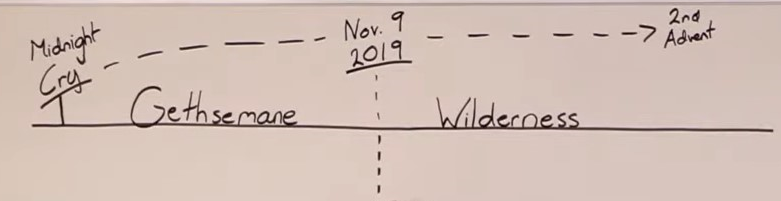 Midnight
Cry
Nov. 9
2019
2nd
Advent
Gethsemane
Wilderness